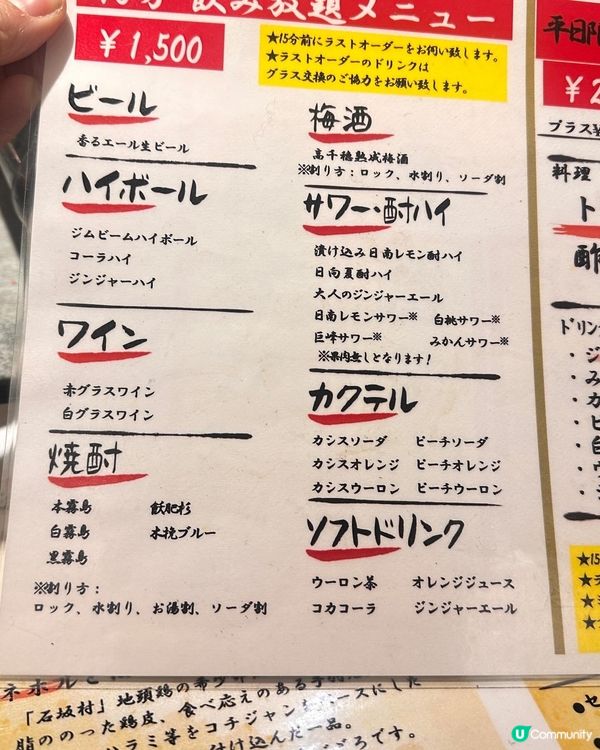 飲み放題メニュー
￥1,500
★15分前にラストオーダーをお伺い致します。
★ラストオーダーのドリンクは
グラス交換のご協力をお願い致します。
ビール
香るエール生ビール
ハイボール
ジムビームハイボール
コーラハイ
ジンジャーハイ
ワイン
赤グラスワイン
白グラスワイン
焼酎
本霧島 飫肥杉
白霧島 木挽ブルー
黒霧島
※割り方：
ロック、水割り、お湯割、ソーダ割
梅酒
高千穂熟成梅酒
※割り方：ロック、水割り、ソーダ割
サワー・酎ハイ
漬け込み日南レモン酎ハイ
日向夏酎ハイ
大人のジンジャーエール
日南レモンサワー※ 白桃サワー※
巨峰サワー※ みかんサワー※
※果肉無しとなります！
カクテル
カシスソーダ ピーチソーダ
カシスオレンジ ピーチオレンジ
カシスウーロン ピーチウーロン
ソフトドリンク
ウーロン茶 オレンジジュース
コカコーラ ジンジャーエール
平日限
￥2
プラス￥
料理
ト
酢
ドリン
・ジ
・み
・カ
・ピ
・白
・ウ
・ジ
★15
★ラ
「石坂村」地頭鶏の希少
脂ののった鶏皮、食べ応えのある
ハラミ等をコチジャン
ースにした
付け込んだ一品。
ごろです。
U Community